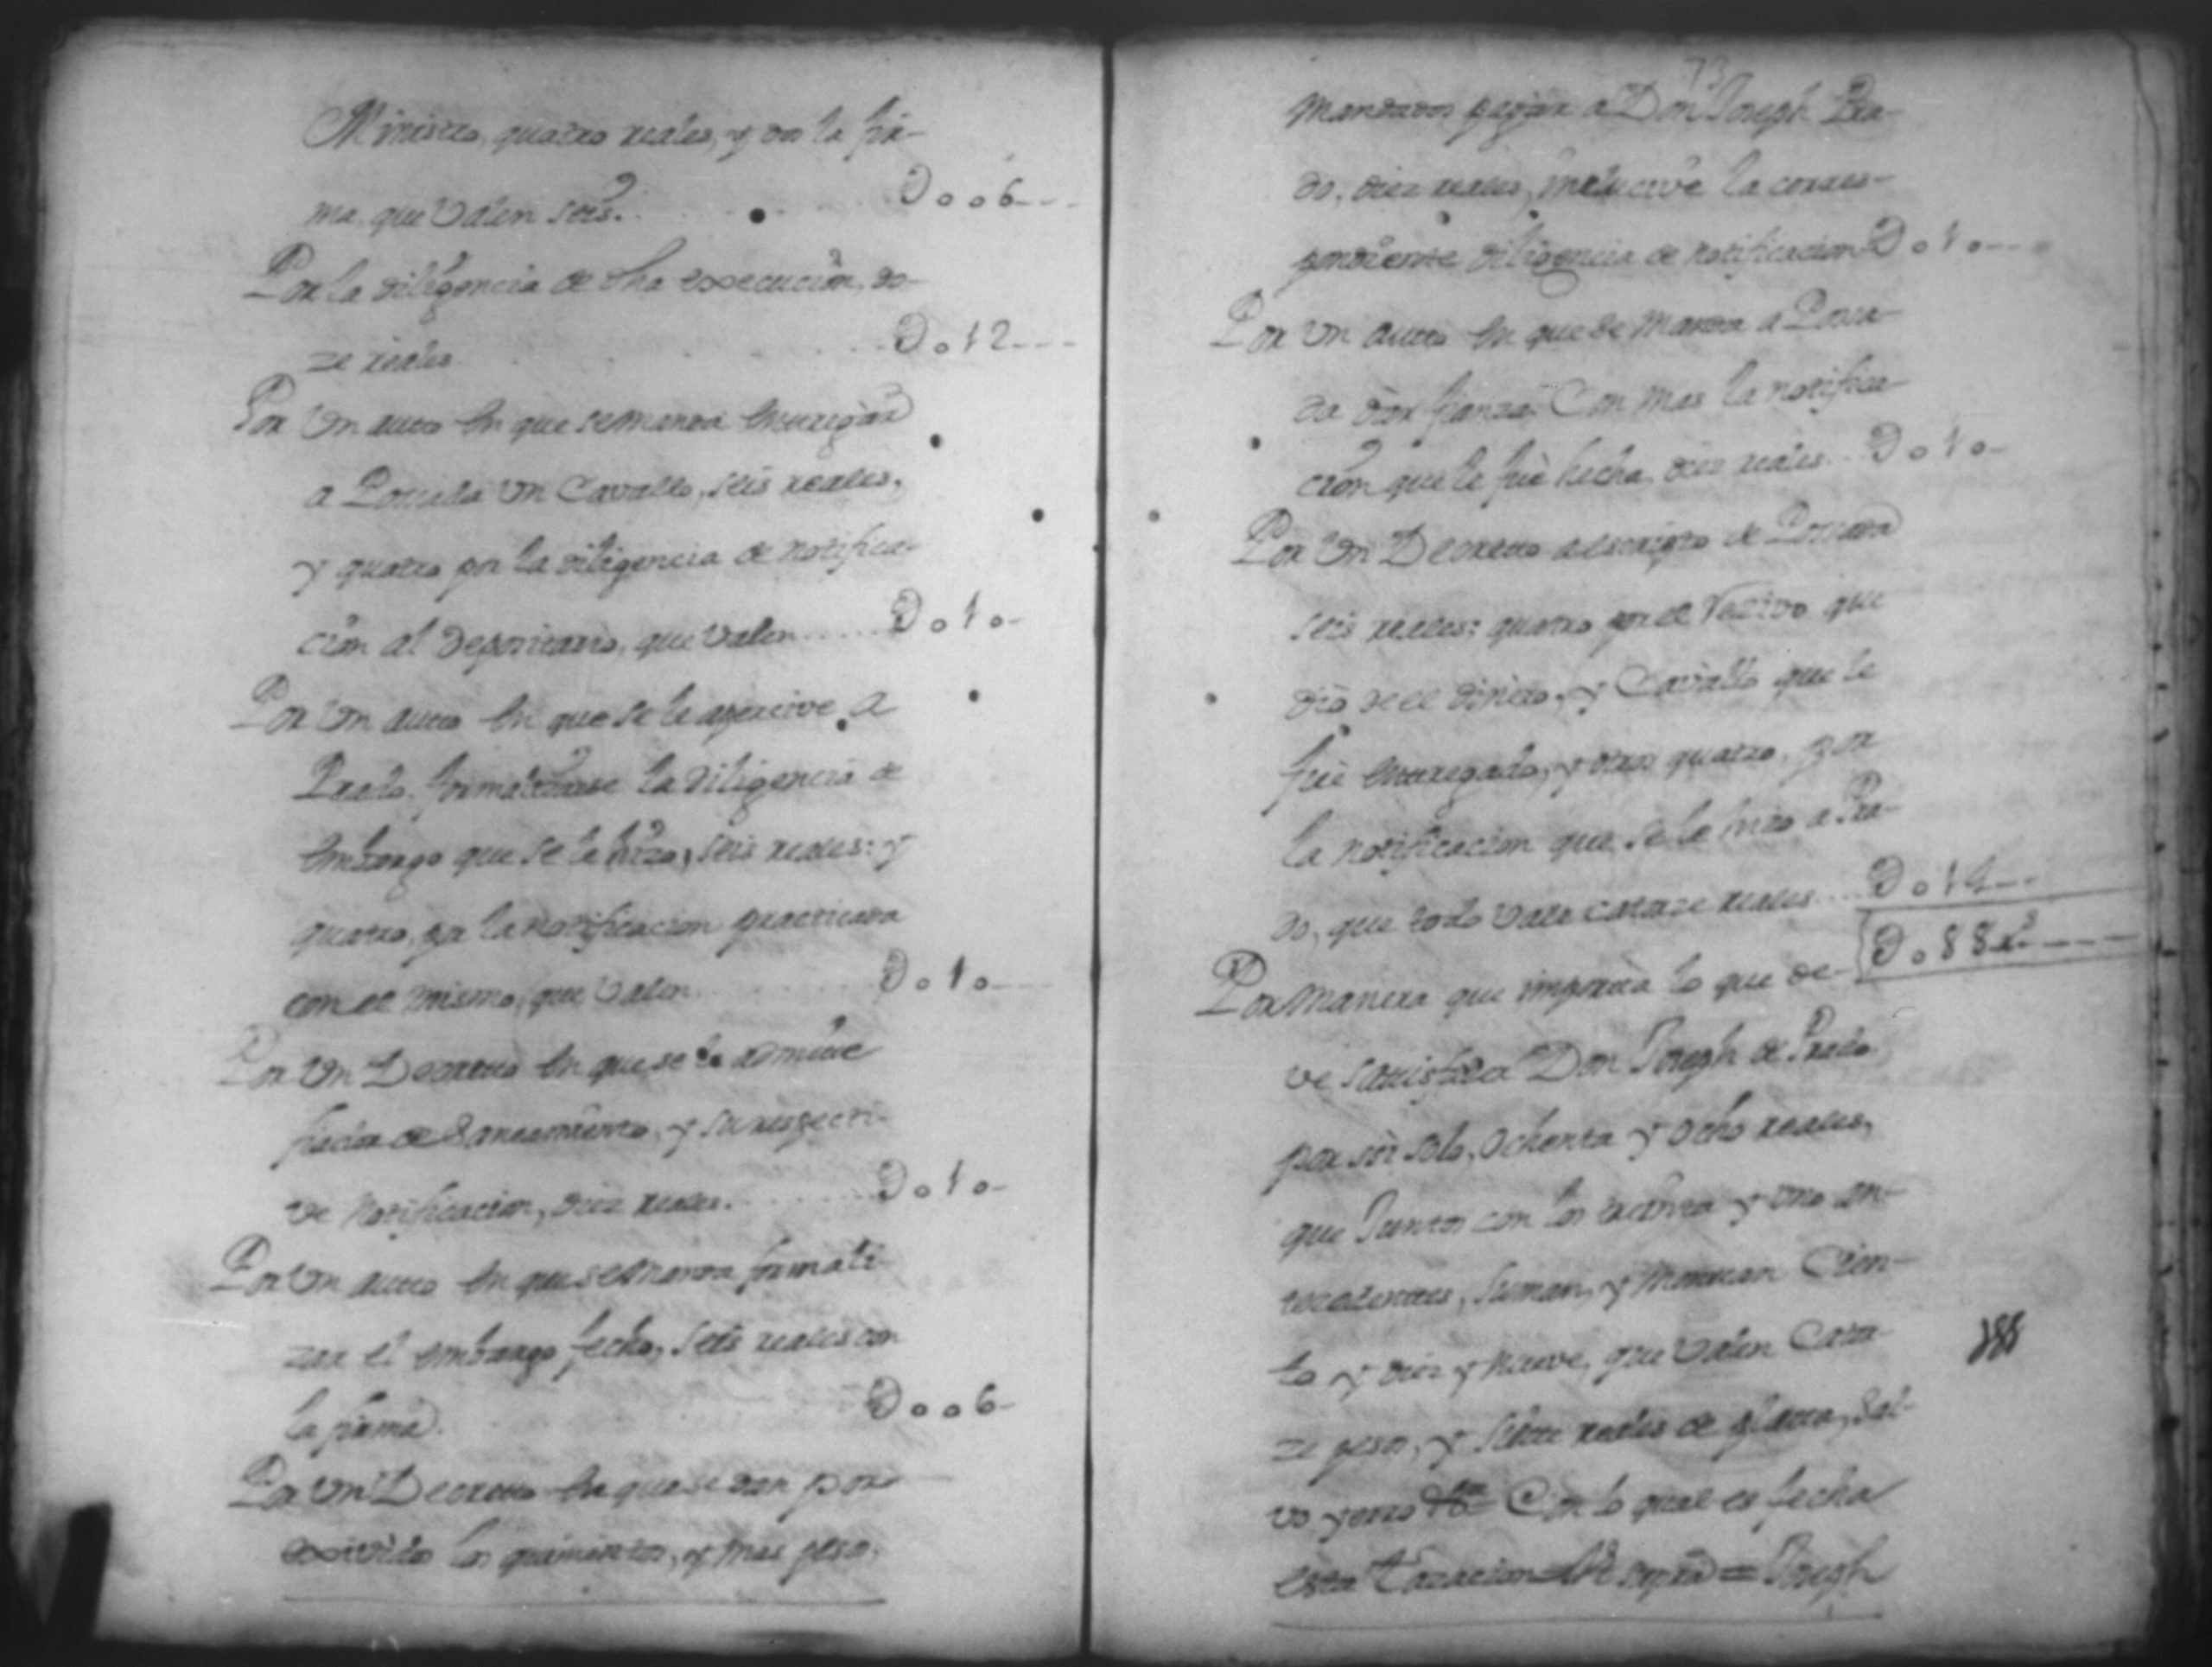 Ministro, quatro reales, y dos la fir-
ma, que Valen seis. D006
Por la diligencia de dha execucion, do-
ze reales D012
Por Vn auto en que se manda entregar
a Posada Vn Cavallo, seis reales,
y quatro por la diligencia de notifica-
cion al Depositario, que valen D010
Por Vn auto en que se le apercive a
Prado, formalizase la diligencia de
embargo que se le hizo, seis reales: y
quatro, por la notificacion practicada
con el mismo, que Valen D010
Por Vn Decretto en que se le admitte
fiador de Saneamiento, y su respecti-
ve Notificacion, diez reales. D010
Por Vn auto en que se manda formali-
zar el embargo fecho, seis reales con
la firma. D006
Por Vn Decretto en que se dan por
exividos los quinientos, y mas pesos,
73
mandados pagar a Don Joseph Pra-
do, diez reales, inclucive la corres-
pondiente diligencia de notificacion D010
Por Vn auto en que se manda a Posa-
da dar fianza, Con mas la notifica-
cion que le fue hecha diez reales D010
Por Vn Decretto a escripto de Posada
seis reales: quatro por el recivo que
dio de el dinero, y Cavallo que le
fue entregado, y otros quatro, por
la notificacion que se le hizo a Pra-
do, que todo vale catorze reales D014
Por manera que importa lo que de- D088
ve satisfacer Don Joseph de Prado
por si solo, ochenta y ocho reales,
que Juntos con los treinta y uno an-
tecedentes, suman, y montan Cien-
to y diez y nueve, que Valen Cator-
ze pesos, y siete reales de platta, Sal-
vo yerro Con lo qual es fecha
esta Tazacion supra = Joseph